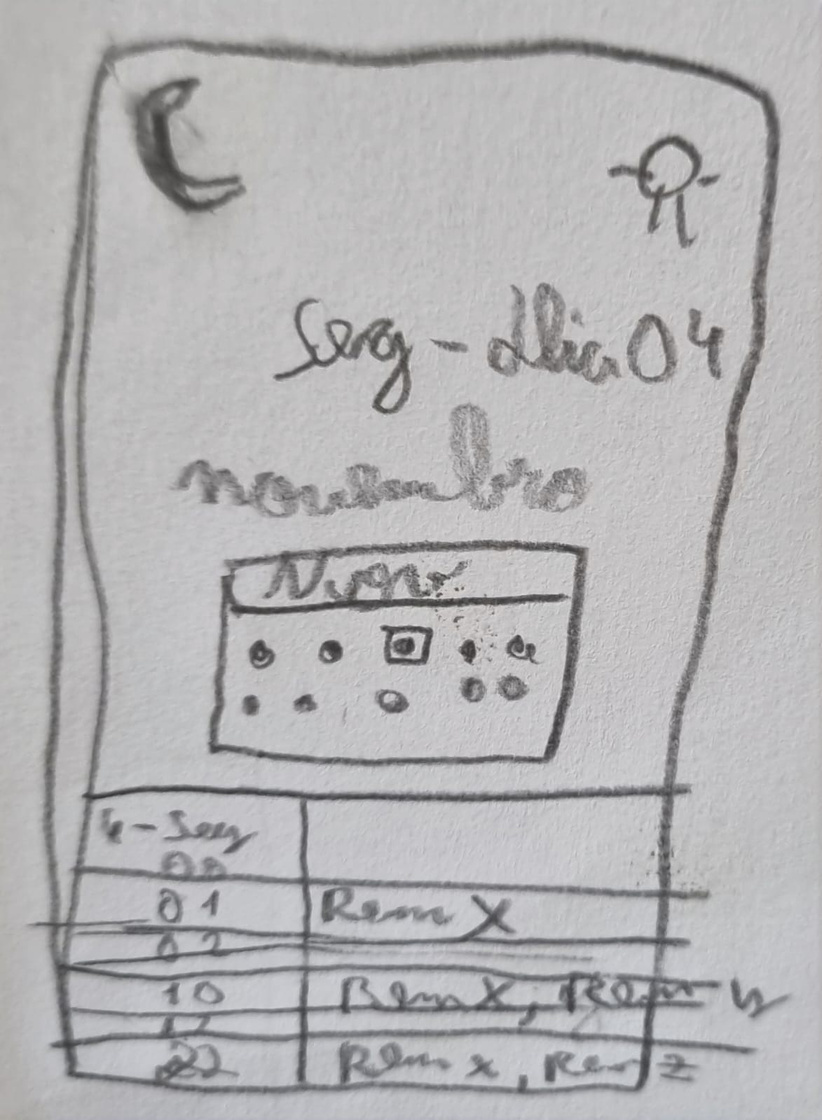 Seg - Dia 04
novembro
Nov
4-Seg
00
01 Rem X
02
10 Rem X, Rem y
22 Rem x, Rem z